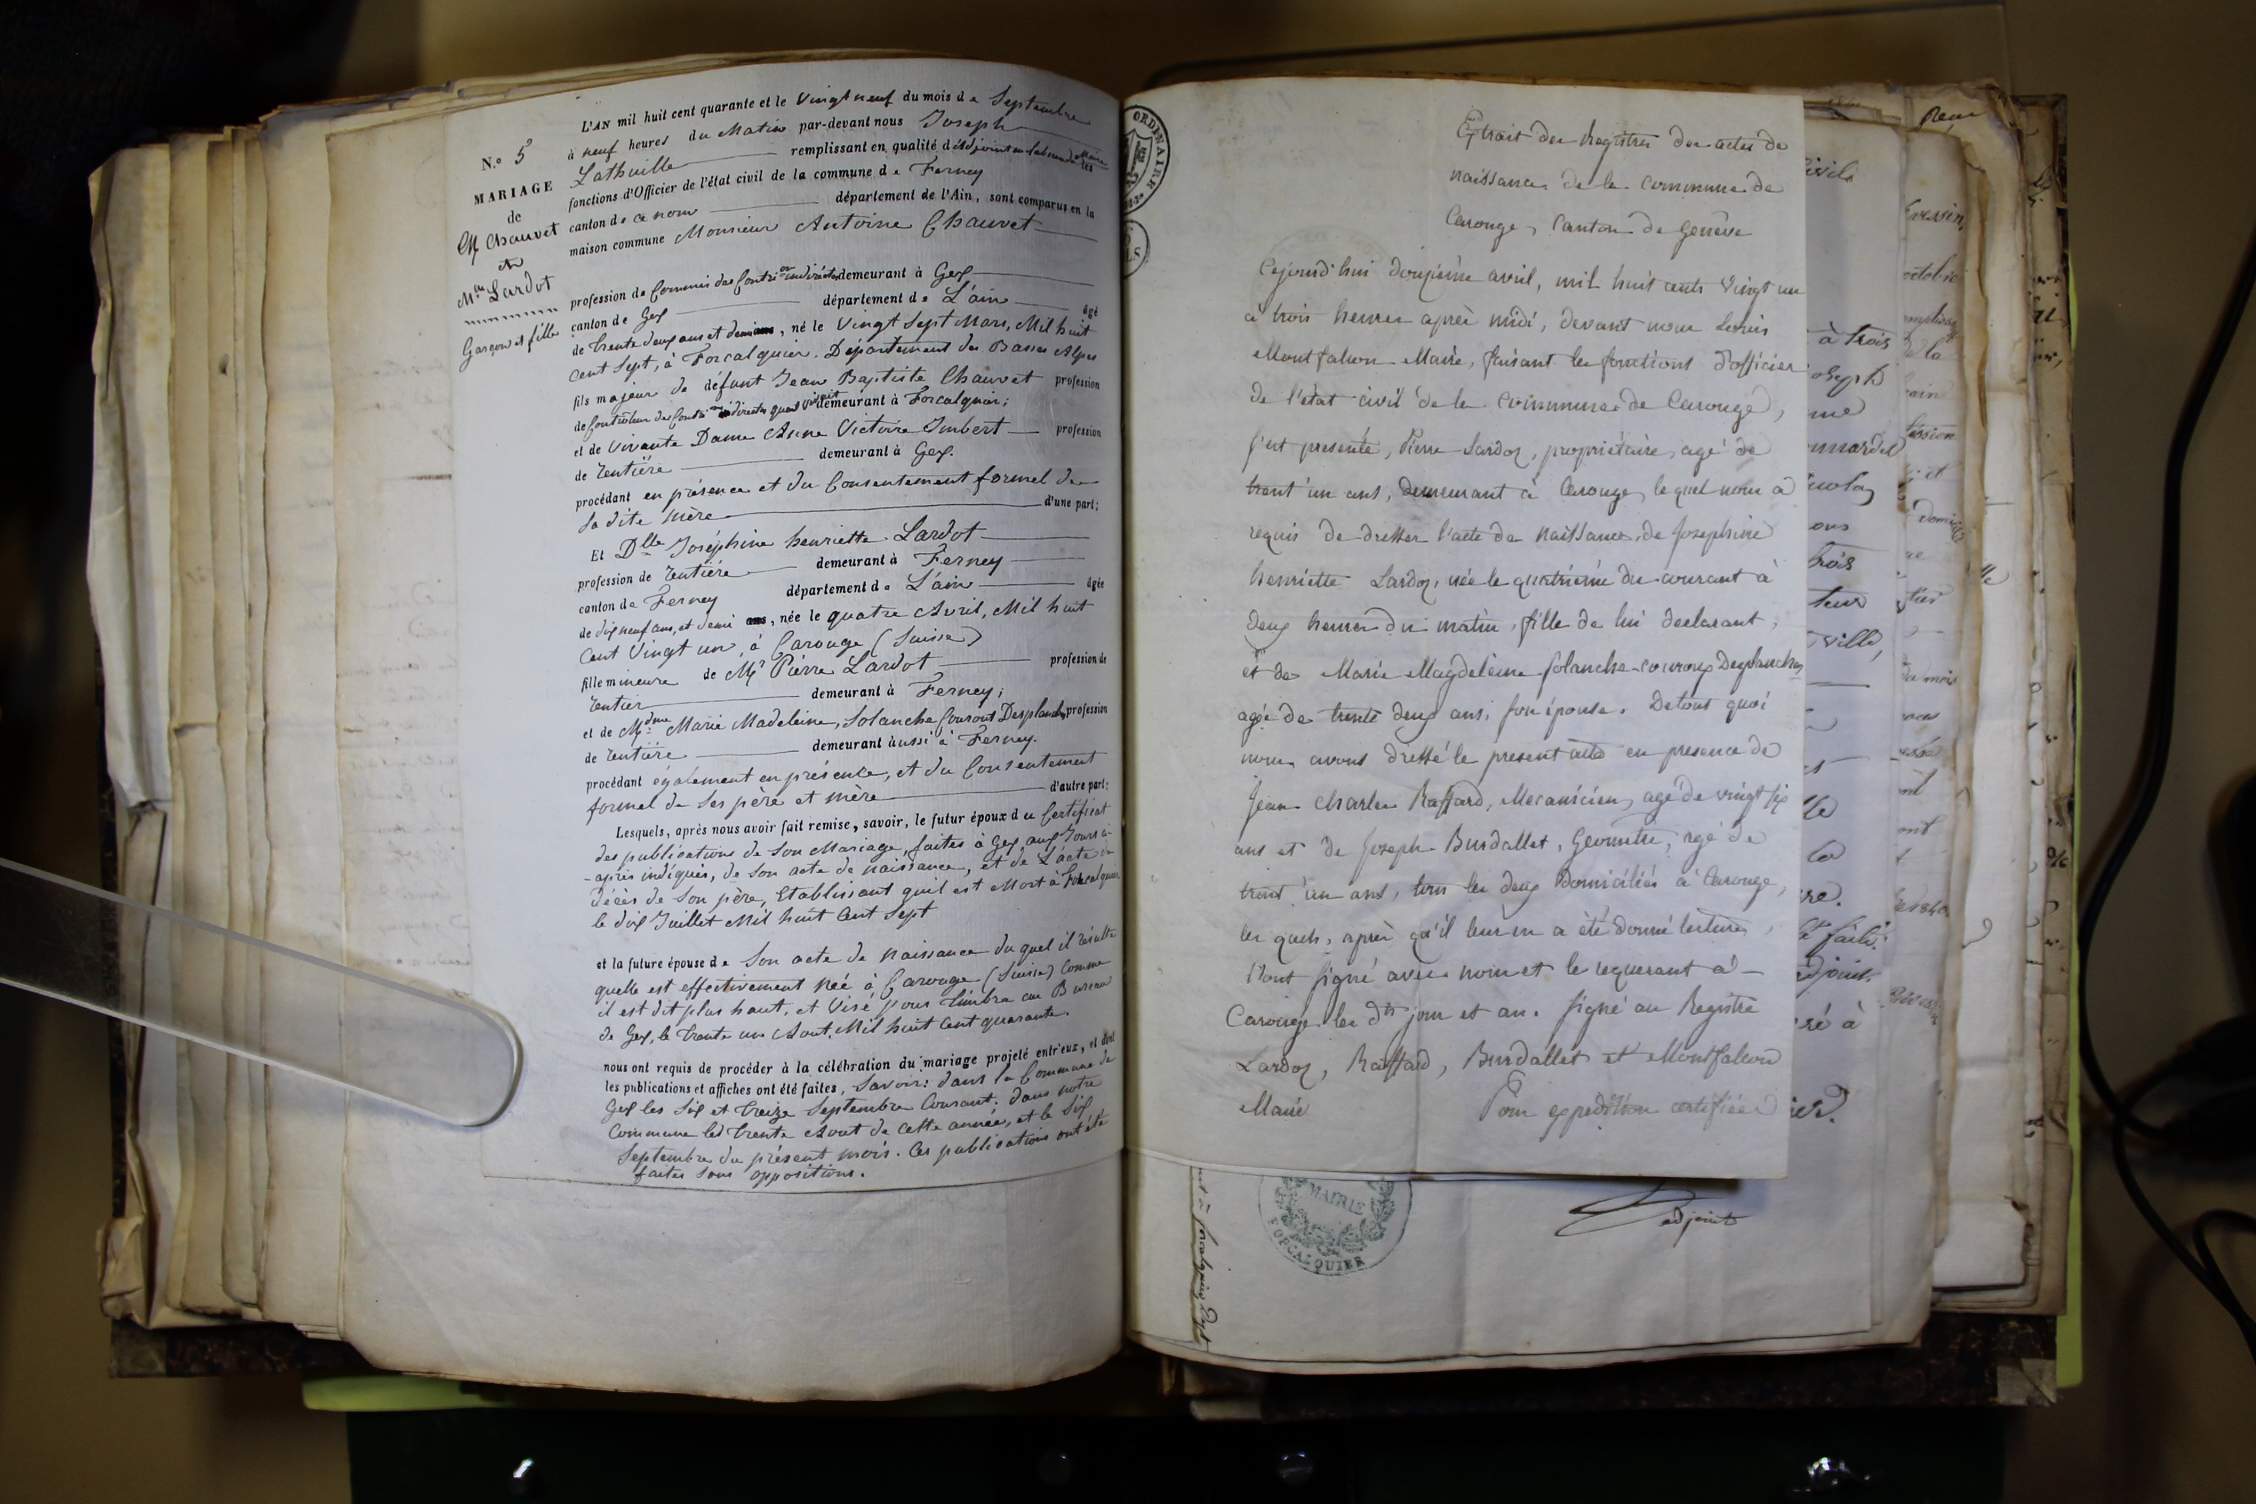 N.o 5
MARIAGE
de
Mr Chauvet
et
Mlle Lardot
Garçon et fille
L'AN mil huit cent quarante et le Vingt neuf du mois de Septembre
à neuf heures du Matin par-devant nous Joseph
Lathuille remplissant en qualité d'adjoint Maire les
fonctions d'Officier de l'état civil de la commune de Ferney
canton de ce nom département de l'Ain, sont comparus en la
maison commune Monsieur Antoine Chauvet
profession de Commis des Contrions indirectes demeurant à Gex
canton de Gex département de L'ain âgé
de trente deux ans et demi ans, né le Vingt Sept Mars, Mil huit
cent Sept, à Forcalquier. Département des Basses Alpes
fils majeur de défunt Jean Baptiste Chauvet profession
de Controleur des Contrions indirectes quand vivait demeurant à Forcalquier;
et de vivante Dame Anne Victoire Imbert profession
de Rentière demeurant à Gex.
procédant en présence et du Consentement formel de
sa dite mère d'une part;
Et Dlle Joséphine henriette Lardot
profession de rentière demeurant à Ferney
canton de Ferney département de L'ain âgée
de dix neuf ans, et demi ans, née le quatre Avril, Mil huit
Cent Vingt un, à Carouge (Suisse)
fille mineure de Mr Pierre Lardot profession de
rentier demeurant à Ferney;
et de Mdme Marie Madeleine, Solanche Couront Desplanches profession
de rentière demeurant aussi à Ferney.
procédant également en présence, et du Consentement
formel de Ses père et mère d'autre part;
Lesquels, après nous avoir fait remise, savoir, le futur époux du Certificat
des publications de Son Mariage, faites à Gex aux Jours ci-
-après indiqués, de Son acte de naissance, et de L'acte de
décès de Son père, Etablissant qu'il est Mort à Forcalquier
le dix Juillet Mil huit Cent Sept
et la future épouse de Son acte de naissance du quel il résulte
quelle est effectivement Née à Carouge (Suisse) Comme
il est dit plus haut, et Visé pour timbre au Bureau
de Gex, le trente un Aout, Mil huit Cent quarante.
nous ont requis de procéder à la célébration du mariage projeté entr'eux, et dont
les publications et affiches ont été faites, Savoir: dans la Commune de
Gex les Six et treize Septembre Courant; dans notre
Commune les trente Aout de cette année, et le Six
Septembre du présent mois. Ces publications ont été
faites sans oppositions.
ORDINAIRE
Extrait des Registres des actes de
naissances de la commune de
Carouge, Canton de Genève
Cejourd'hui douzième avril, mil huit cents vingt un
à trois heures après midi, devant nous Louis
Montfalcon Maire, faisant les fonctions d'officier
de l'état civil de la commune de Carouge,
s'est présenté, Pierre Lardoz, propriétaire, agé de
trent'un ans, demeurant à Carouge, lequel nous a
requis de dresser l'acte de naissance, de Josephine
henriette Lardoz, née le quatrième du courant à
deux heures du matin, fille de lui declarant,
et de Marie Magdeleine Solanche Couroux Desplanches
agée de trente deux ans, son épouse. De tout quoi
nous avons dressé le present acte en presence de
Jean Charles Raffard, Mecanicien, agé de vingt six
ans et de Joseph Burdallet, Geometre, agé de
trent'un ans, tous les deux Domiciliés à Carouge,
les quels, après qu'il leur en a été donné lecture,
l'ont signé avec nous et le requerant à
Carouge les dts jour et an. Signé au Registre
Lardoz, Raffard, Burdallet et Montfalcon
Maire
Pour expédition certifiée
adjoint
MAIRIE
FORCALQUIER
à trois
trois
ville,